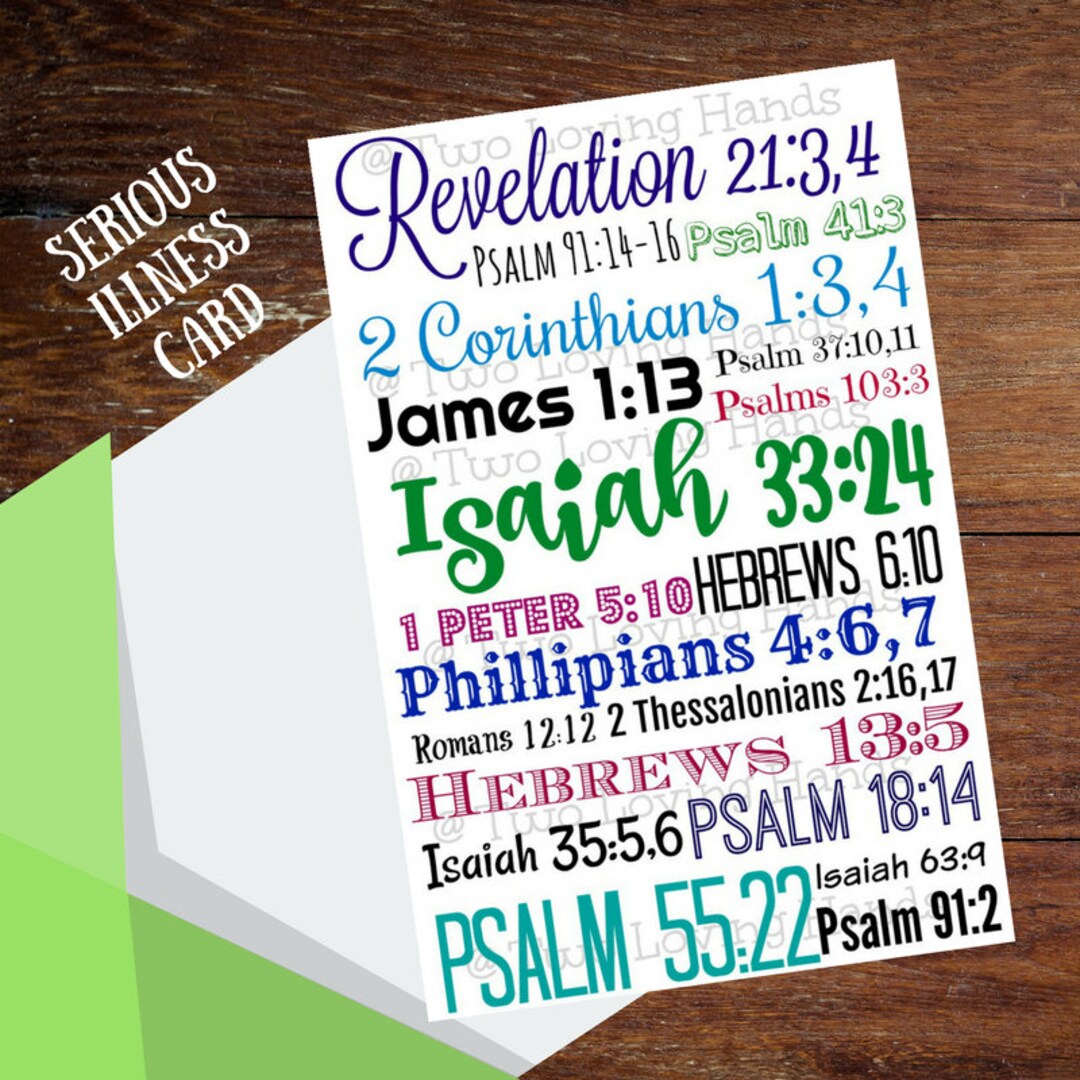 SERIOUS
ILLNESS
CARD
@ Two Loving Hands
Revelation 21:3,4
PSALM 91:14-16 Psalm 41:3
2 Corinthians 1:3,4
@ Two Loving Hands
James 1:13 Psalm 37:10,11
Psalms 103:3
@ Two Loving Hands
Isaiah 33:24
1 PETER 5:10 HEBREWS 6:10
@ Two Loving Hands
Phillipians 4:6,7
Romans 12:12 2 Thessalonians 2:16,17
HEBREWS 13:5
@ Two Loving Hands
Isaiah 35:5,6 PSALM 18:14
PSALM 55:22 Isaiah 63:9
Psalm 91:2
@ Two Loving Hands